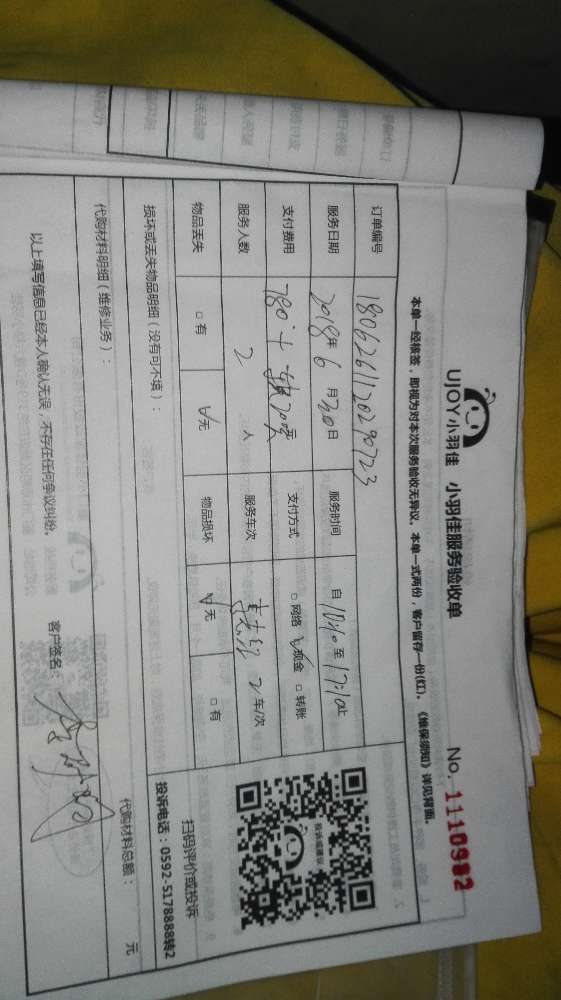 UJOY小羽佳 小羽佳服务验收单
No. 1110982
本单一经核签，即视为对本次服务验收无异议。本单一式两份，客户留存一份(红)。《维保须知》详见背面。
订单编号 1806261120290723
服务日期 2018年6月30日 服务时间 自 至17:10止
支付费用 780+ 元 支付方式 □网络 ☑现金 □转账
服务人数 2 人 服务车次 2 车/次
物品丢失 □有 ☑无 物品损坏 ☑无 □有
损坏或丢失物品明细（没有可不填）：
代购材料明细（维修业务）：
代购材料总额： 元
以上填写信息已经本人确认无误，不存在任何争议纠纷。
客户签名：
投诉或建议
扫码评价或投诉
投诉电话：0592-5178888转2